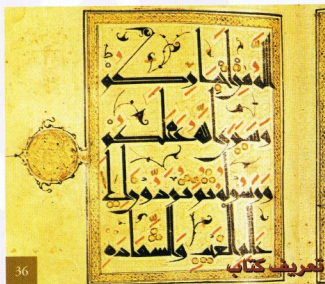 الله من اخباركم
وسيرى الله عملكم
ورسوله ثم تردون الى
علم الغيب والشهادة
تعريف كتاب
36